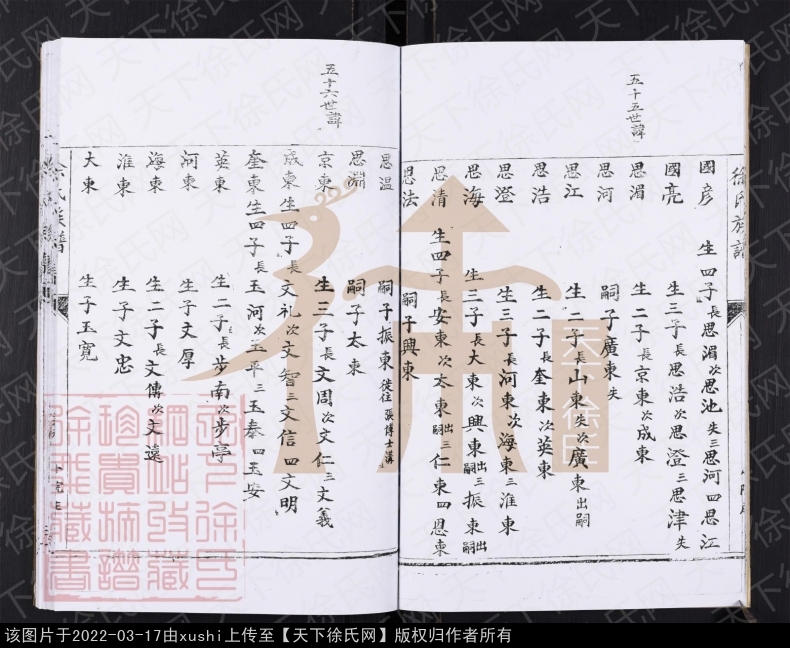 徐氏族譜
五十五世諱
國彥 生四子長思湄次思池失三思河四思江
國亮 生三子長思浩次思澄三思津失
思湄 生二子長京東次成東
思河 嗣子廣東失
思江 生二子長山東失次廣東出嗣
思浩 生二子長奎東次英東
思澄 生三子長河東次海東三淮東
思海 生三子長大東次興東出嗣三振東出嗣
思清 生四子長安東次太東出嗣三仁東四恩東
思法 嗣子興東
五十六世諱
思温 嗣子振東徙住張博士溝
思淵 嗣子太東
京東 生三子長文周次文仁三文義
成東 生四子長文礼次文智三文信四文明
奎東 生四子長玉河次玉平三玉泰四玉安
英東 生二子長步南次步亭
河東 生子文厚
海東 生二子長文傳次文遠
淮東 生子文忠
大東 生子玉寬
徐氏族譜
天下徐氏
天下徐氏网
该图片于2022-03-17由xushi上传至【天下徐氏网】版权归作者所有